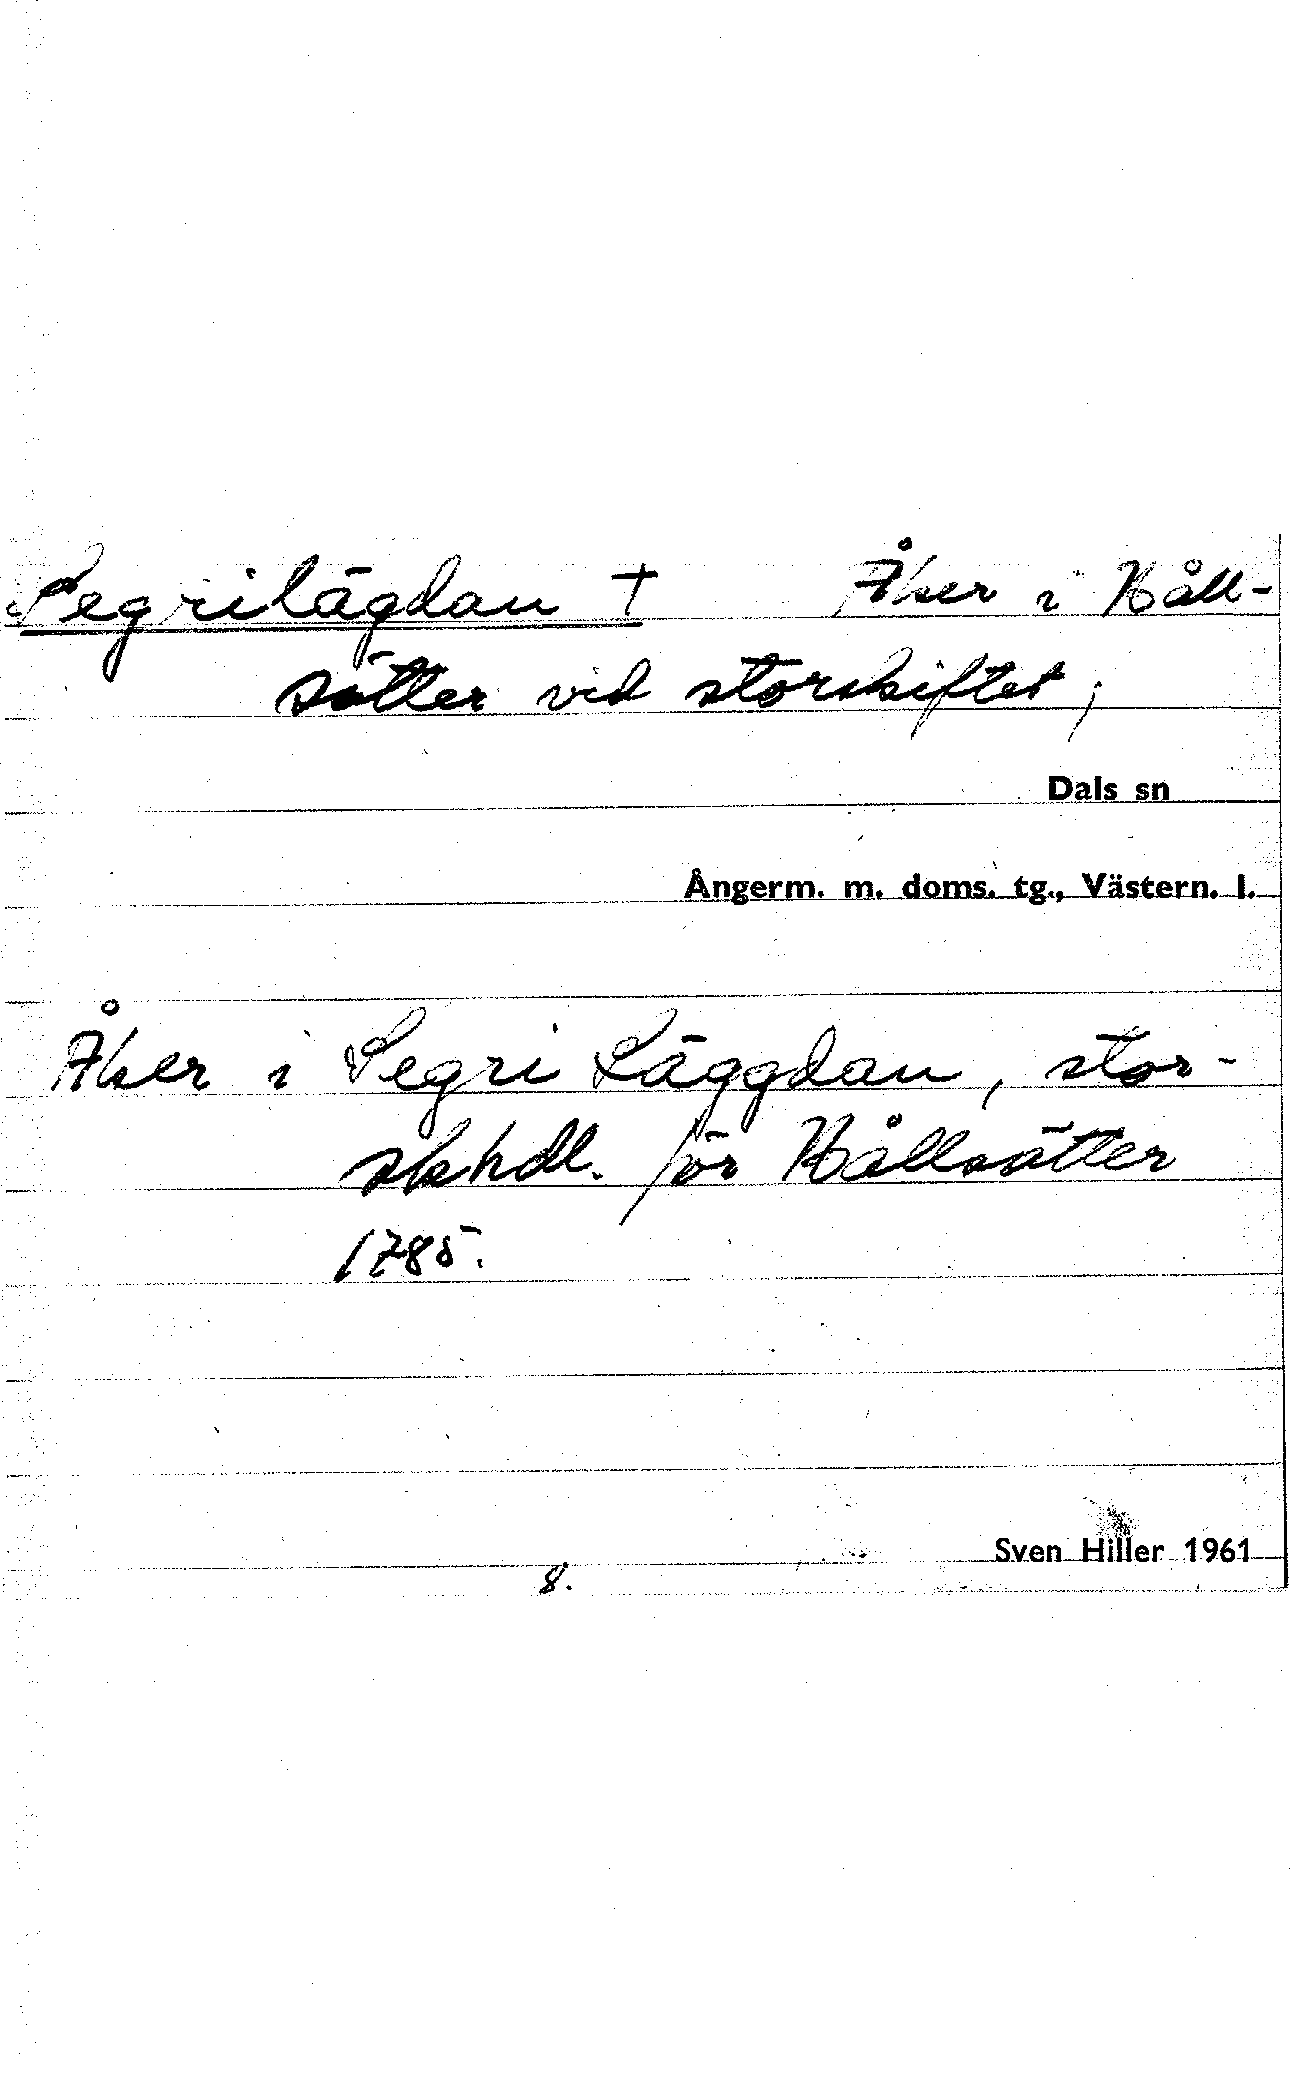 Segrilägdan † Åker i Håll-
sätter vid storskiftet;
Dals sn
Ångerm. m. doms. tg., Västern. l.
Åker i Segri Läggdan, stor-
sk hdl. för Hållsätter
1785.
Sven Hiller 1961
8.